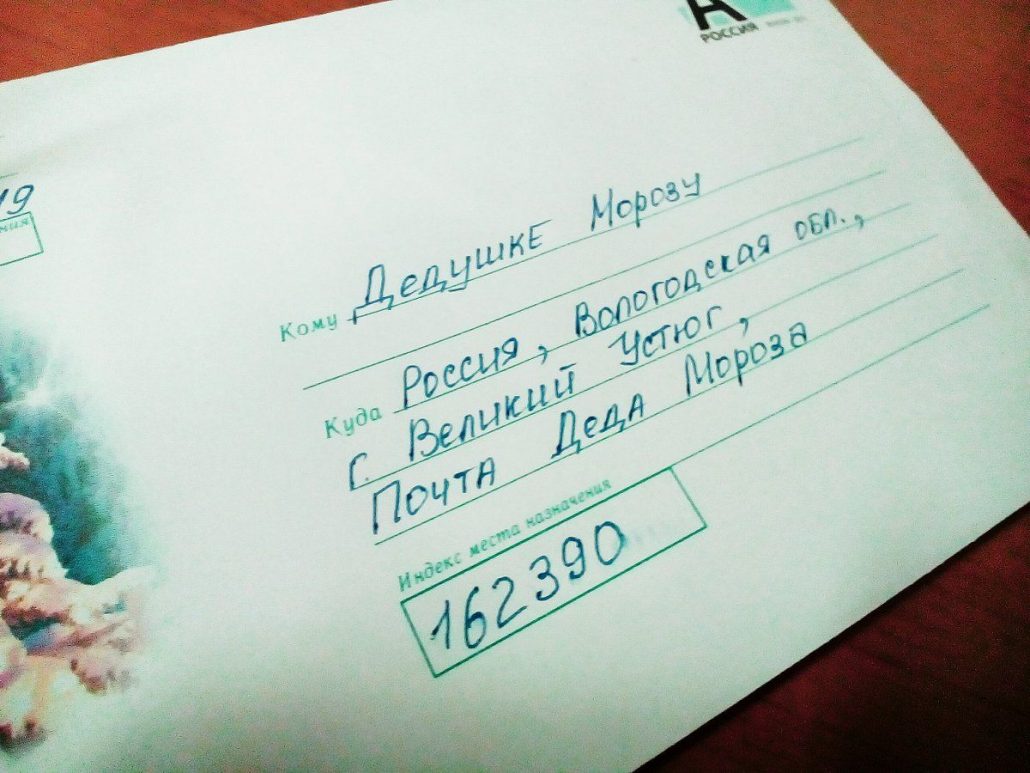 А
РОССИЯ
19
ния
Кому Дедушке Морозу
Куда Россия, Вологодская обл.,
г. Великий Устюг,
Почта Деда Мороза
Индекс места назначения
162390